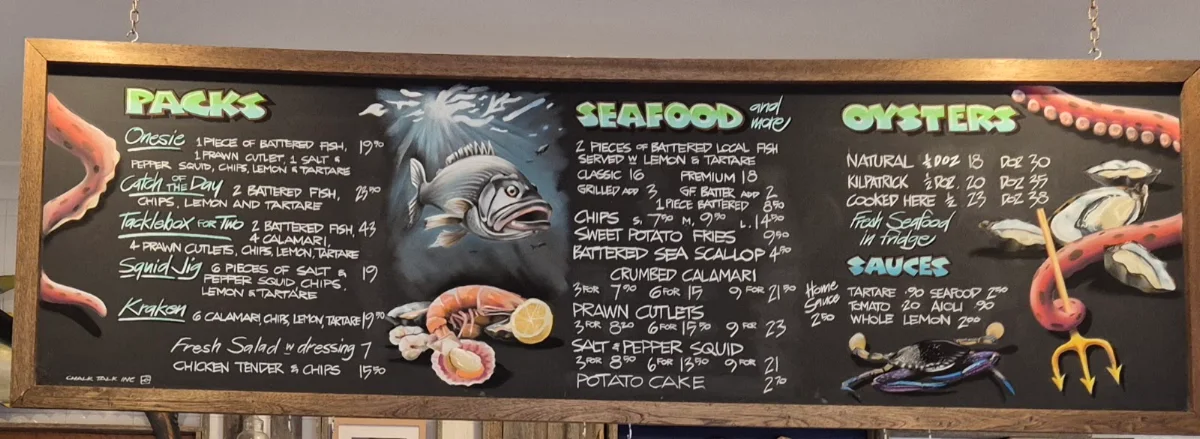 PACKS
Onesie 1 PIECE OF BATTERED FISH, 19⁹⁰
1 PRAWN CUTLET, 1 SALT &
PEPPER SQUID, CHIPS, LEMON & TARTARE
Catch OF THE Day 2 BATTERED FISH, 25⁵⁰
CHIPS, LEMON AND TARTARE
Tacklebox FOR Two 2 BATTERED FISH, 43
4 CALAMARI,
4 PRAWN CUTLETS, CHIPS, LEMON, TARTARE
Squid Jig 6 PIECES OF SALT & 19
PEPPER SQUID, CHIPS,
LEMON & TARTARE
Kraken 6 CALAMARI, CHIPS, LEMON, TARTARE 19⁹⁰
Fresh Salad w dressing 7
CHICKEN TENDER & CHIPS 15⁵⁰
CHALK TALK INC
SEAFOOD and more
2 PIECES OF BATTERED LOCAL FISH
SERVED W LEMON & TARTARE
CLASSIC 16 PREMIUM 18
GRILLED ADD 3 GF BATTER ADD 2
1 PIECE BATTERED 8⁵⁰
CHIPS S. 7⁵⁰ M. 9⁵⁰ L. 14⁵⁰
SWEET POTATO FRIES 9⁵⁰
BATTERED SEA SCALLOP 4⁵⁰
CRUMBED CALAMARI
3 FOR 7⁵⁰ 6 FOR 15 9 FOR 21⁵⁰
PRAWN CUTLETS
3 FOR 8²⁰ 6 FOR 15⁵⁰ 9 FOR 23
SALT & PEPPER SQUID
3 FOR 8⁵⁰ 6 FOR 13⁵⁰ 9 FOR 21
POTATO CAKE 2⁷⁰
OYSTERS
NATURAL ½ DOZ 18 DOZ 30
KILPATRICK ½ DOZ. 20 DOZ 35
COOKED HERE ½ 23 DOZ 38
Fresh Seafood
in fridge
SAUCES
Home
Sauce
2⁵⁰
TARTARE .90 SEAFOOD 2⁵⁰
TOMATO .20 AIOLI .90
WHOLE LEMON 2⁰⁰